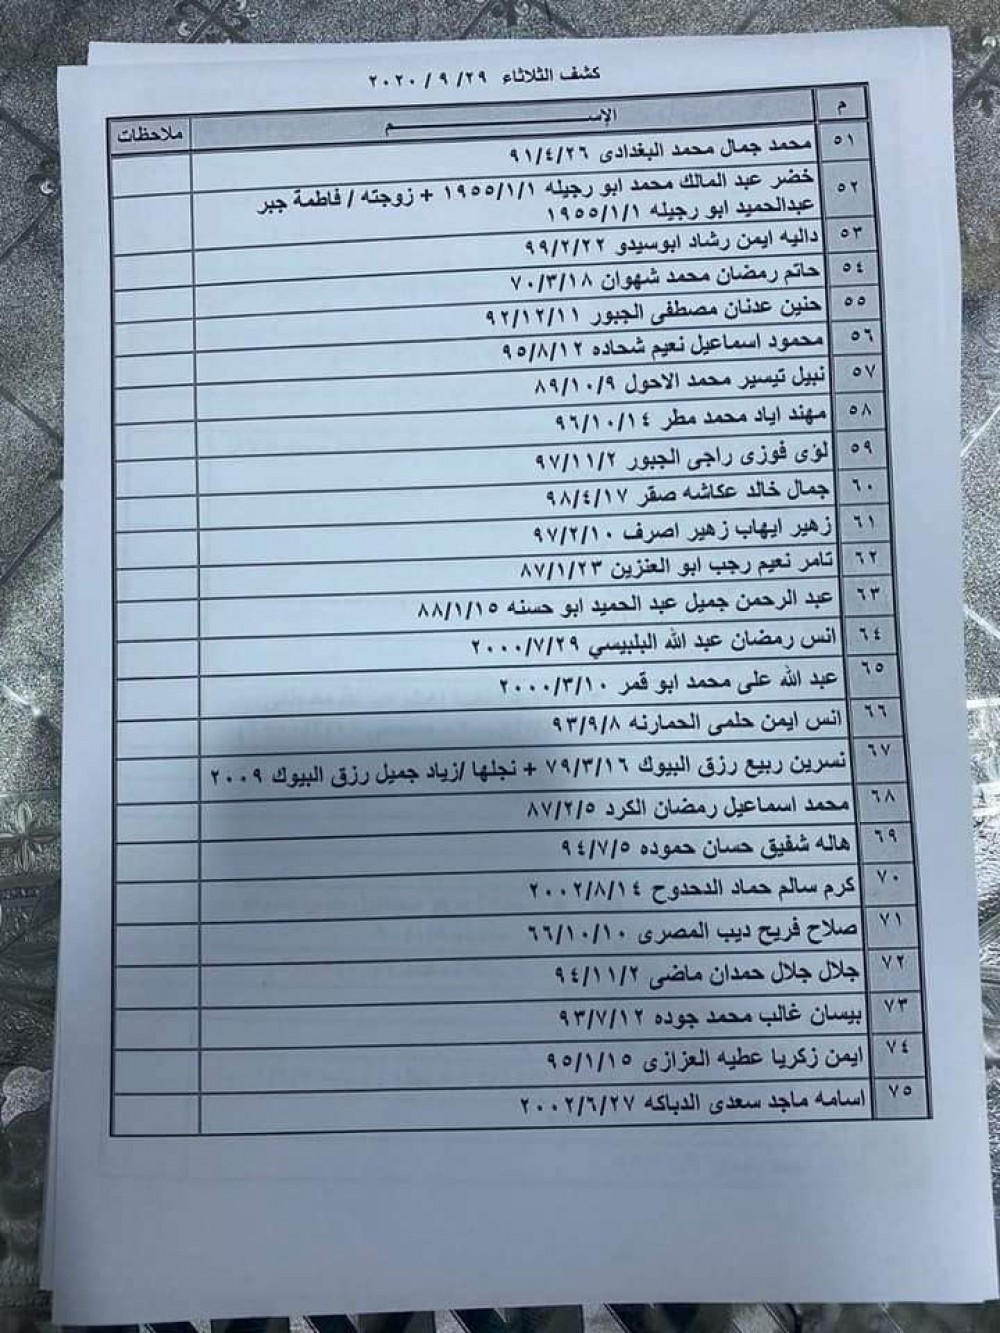 كشف الثلاثاء ٢٩/ ٩ / ٢٠٢٠
م الإســـــــــم ملاحظات
٥١ محمد جمال محمد البغدادى ٩١/٤/٢٦
٥٢ خضر عبد المالك محمد ابو رجيله ١٩٥٥/١/١ + زوجته / فاطمة جبر
عبدالحميد ابو رجيله ١٩٥٥/١/١
٥٣ داليه ايمن رشاد ابوسيدو ٩٩/٢/٢٢
٥٤ حاتم رمضان محمد شهوان ٧٠/٣/١٨
٥٥ حنين عدنان مصطفى الجبور ٩٢/١٢/١١
٥٦ محمود اسماعيل نعيم شحاده ٩٥/٨/١٢
٥٧ نبيل تيسير محمد الاحول ٨٩/١٠/٩
٥٨ مهند اياد محمد مطر ٩٦/١٠/١٤
٥٩ لؤى فوزى راجى الجبور ٩٧/١١/٢
٦٠ جمال خالد عكاشه صقر ٩٨/٤/١٧
٦١ زهير ايهاب زهير اصرف ٩٧/٢/١٠
٦٢ تامر نعيم رجب ابو العنزين ٨٧/١/٢٣
٦٣ عبد الرحمن جميل عبد الحميد ابو حسنه ٨٨/١/١٥
٦٤ انس رمضان عبد الله البلبيسي ٢٠٠٠/٧/٢٩
٦٥ عبد الله على محمد ابو قمر ٢٠٠٠/٣/١٠
٦٦ انس ايمن حلمى الحمارنه ٩٣/٩/٨
٦٧ نسرين ربيع رزق البيوك ٧٩/٣/١٦ + نجلها /زياد جميل رزق البيوك ٢٠٠٩
٦٨ محمد اسماعيل رمضان الكرد ٨٧/٢/٥
٦٩ هاله شفيق حسان حموده ٩٤/٧/٥
٧٠ كرم سالم حماد الدحدوح ٢٠٠٢/٨/١٤
٧١ صلاح فريح ديب المصرى ٦٦/١٠/١٠
٧٢ جلال جلال حمدان ماضى ٩٤/١١/٢
٧٣ بيسان غالب محمد جوده ٩٣/٧/١٢
٧٤ ايمن زكريا عطيه العزازى ٩٥/١/١٥
٧٥ اسامه ماجد سعدى الدباكه ٢٠٠٢/٦/٢٧